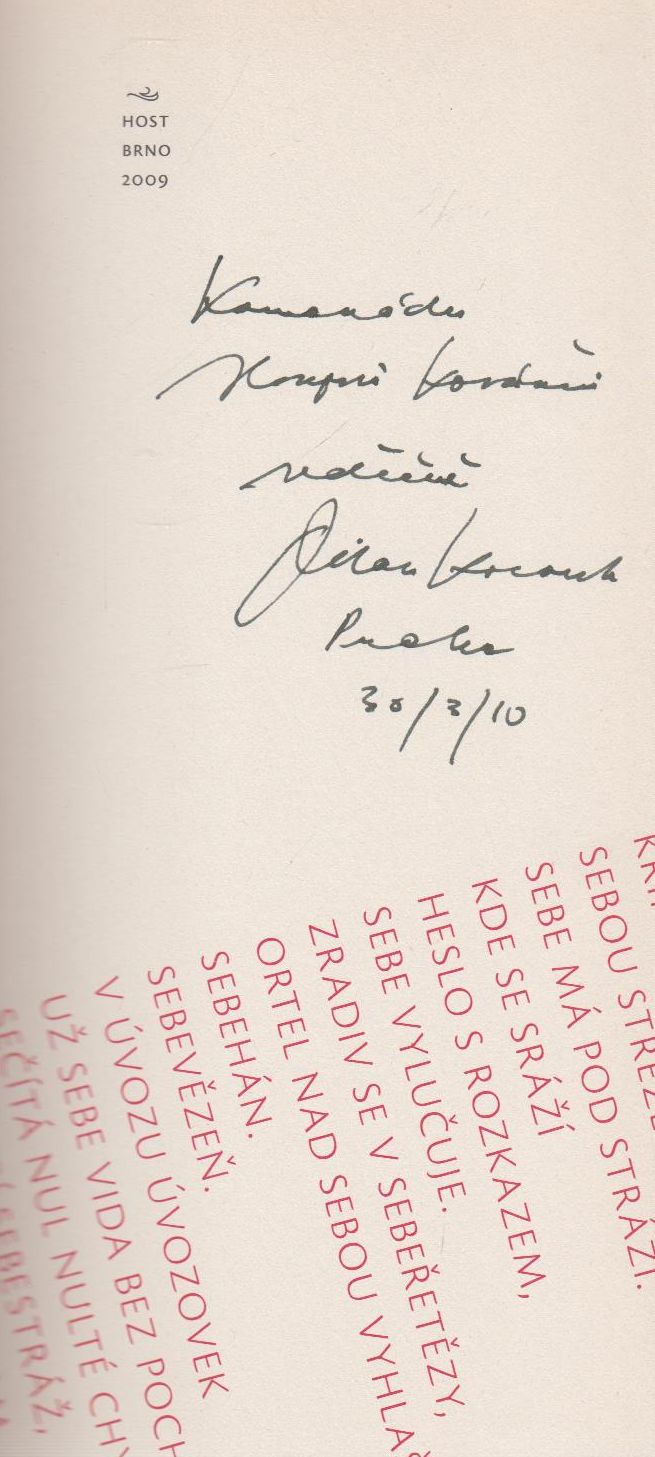 HOST
BRNO
2009
Kamarádu
vděčně
Praha
30/3/10
SEBOU STŘEŽE
SEBE MÁ POD STRÁŽÍ.
KDE SE SRÁŽÍ
HESLO S ROZKAZEM,
SEBE VYLUČUJE.
ZRADIV SE V SEBEŘETĚZY,
ORTEL NAD SEBOU VYHLAŠ
SEBEHÁN.
SEBEVĚZEŇ.
V ÚVOZU ÚVOZOVEK
UŽ SEBE VIDA BEZ POCH
SEČÍTÁ NUL NULTÉ CHY
SEBESTRÁŽ,